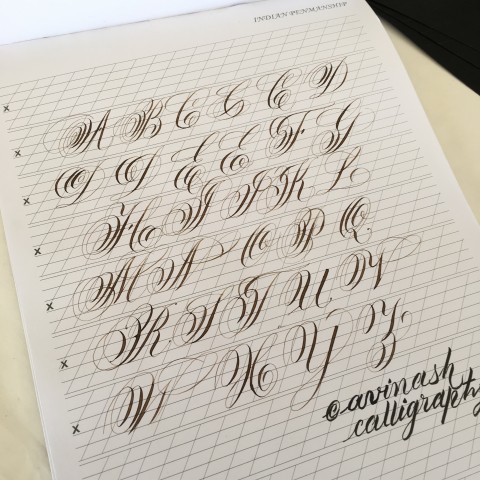 INDIAN PENMANSHIP
A B C C C D
D D E E F G
H I J K L
M N O P Q
R S T U V
W X Y Z
@avinash
calligraphy